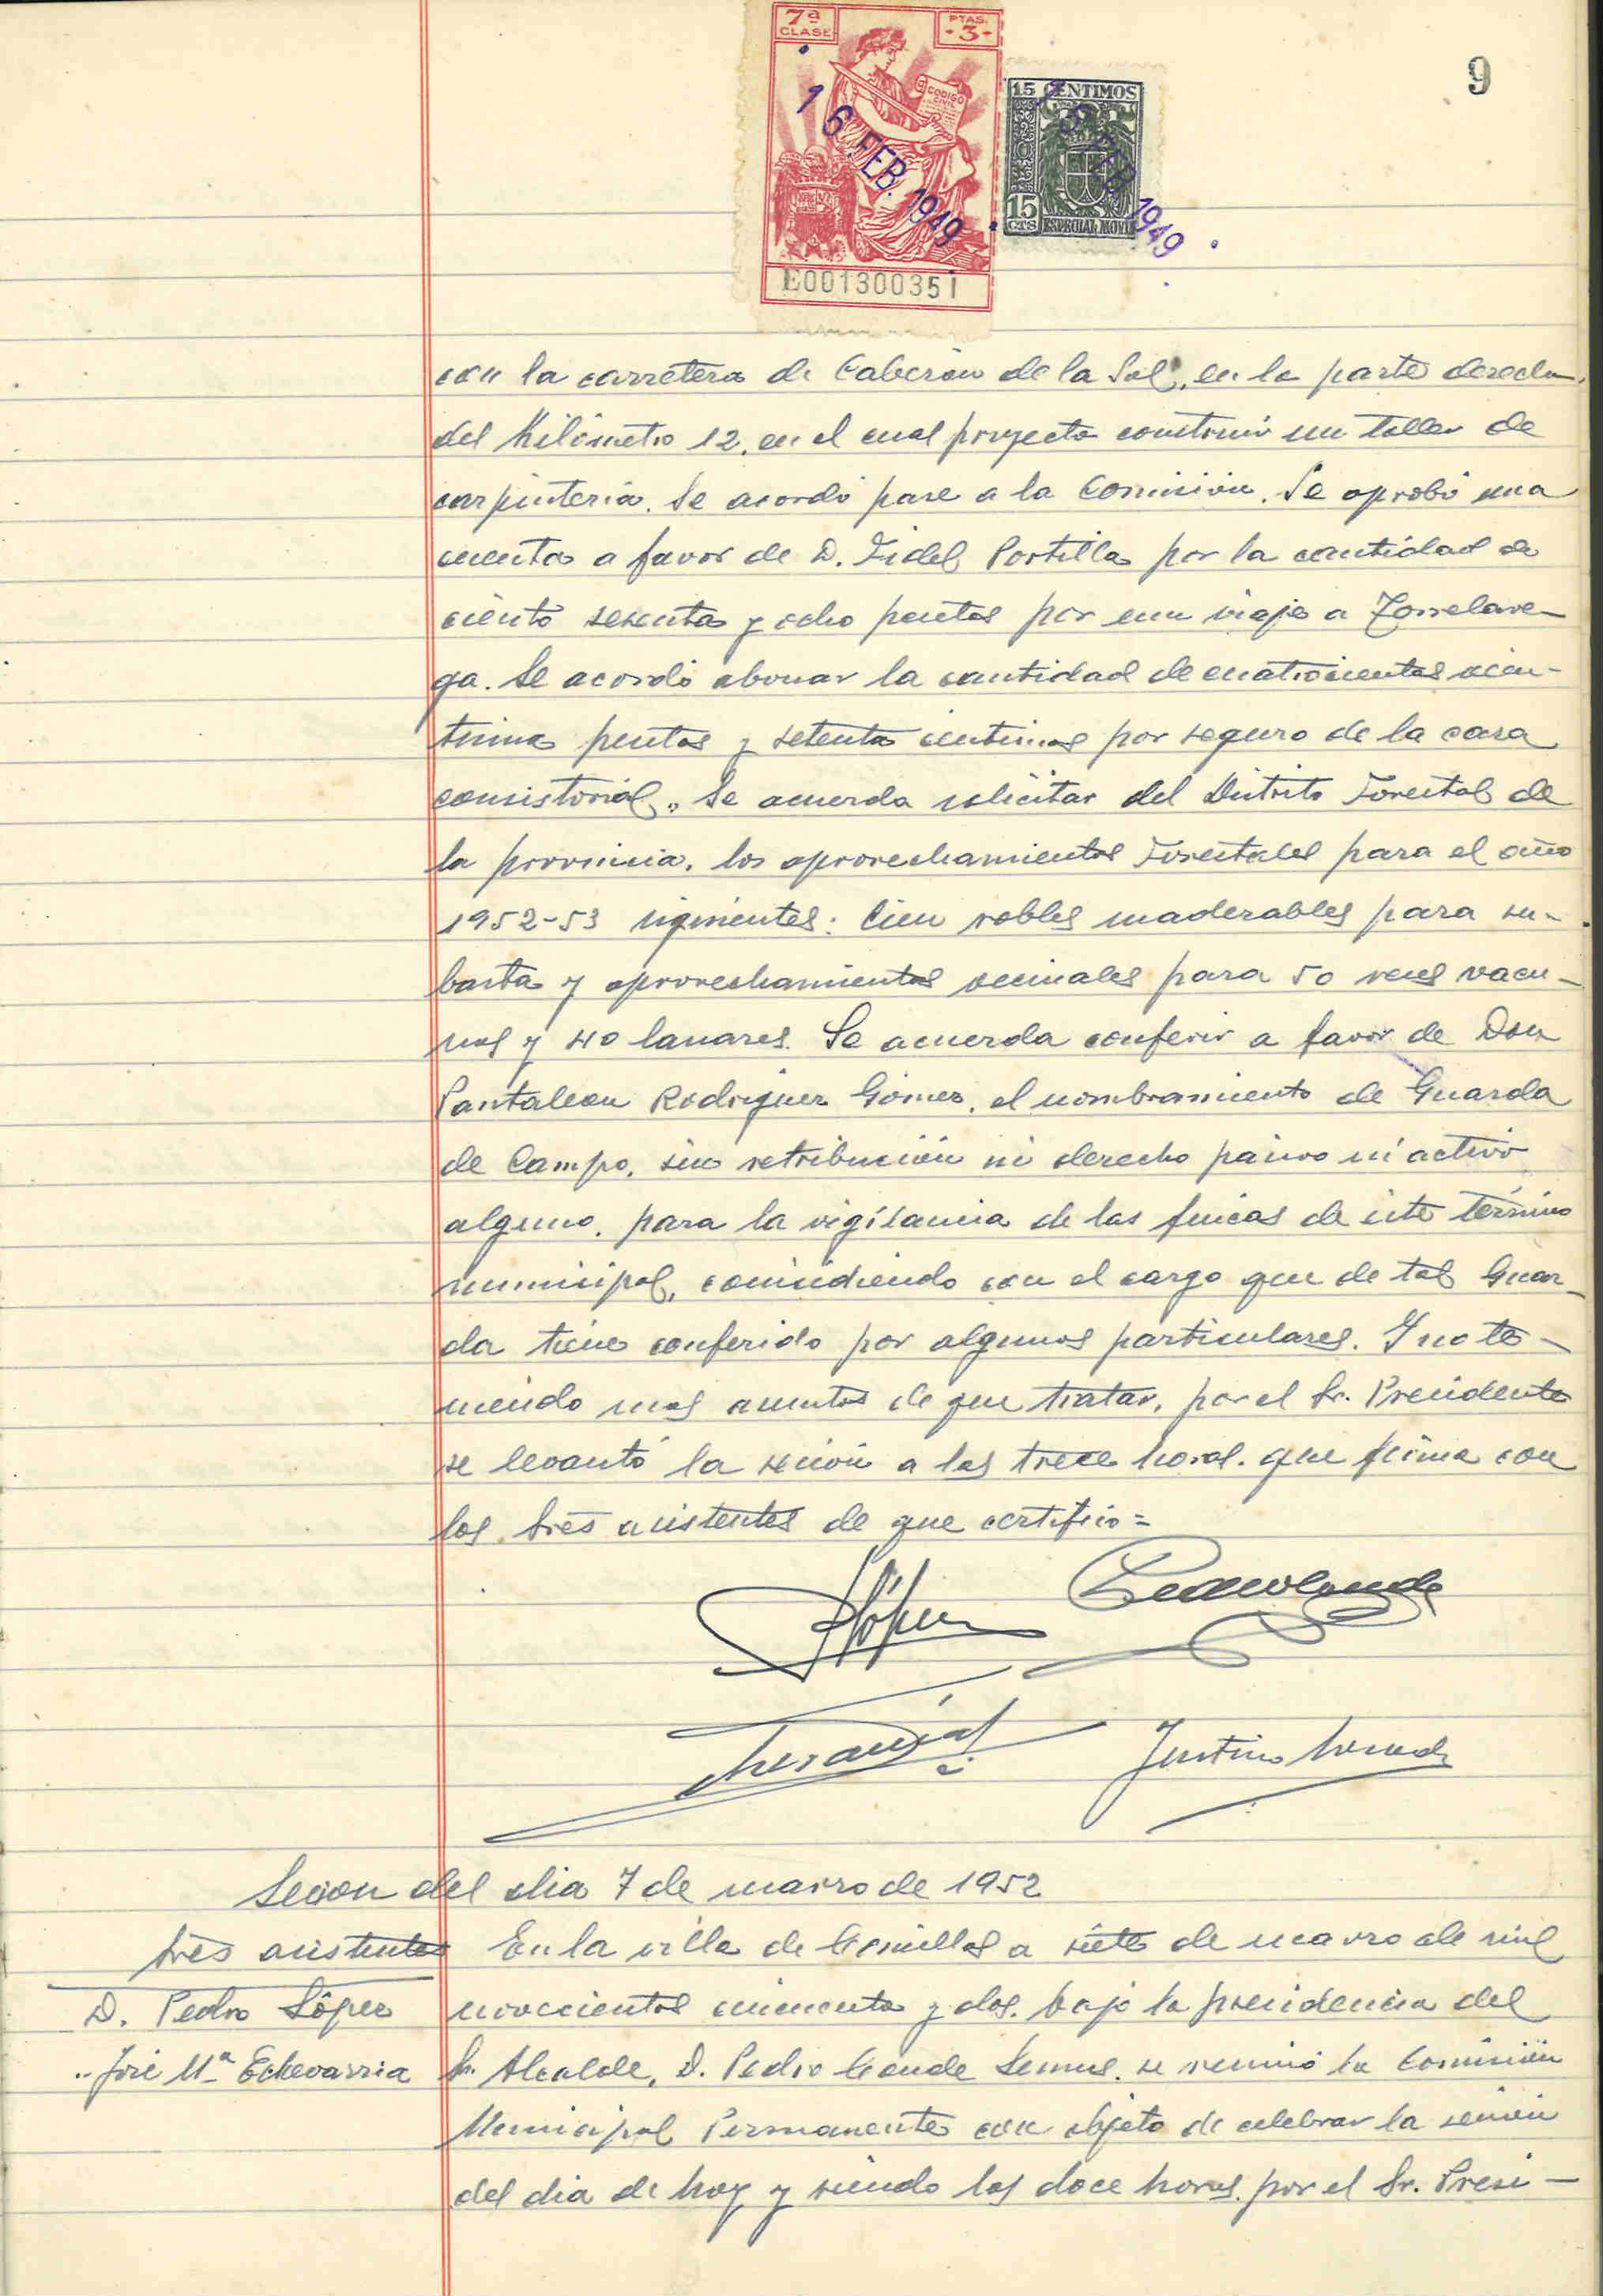 7ª CLASE
PTAS. -3-
CODIGO CIVIL
16 FEB. 1949
E001300351
15 CENTIMOS
16 FEB. 1949
15 CTS ESPECIAL MOVIL
9
con la carretera de Cabezón de la Sal, en la parte derecha
del Kilómetro 12, en el cual proyecta construir un taller de
carpintería. Se acordó pase a la Comisión. Se aprobó una
cuenta a favor de D. Fidel Portilla por la cantidad de
ciento sesenta y ocho pesetas por un viaje a Torrelave-
ga. Se acordó abonar la cantidad de cuatrocientas
pesetas y setenta centimos por seguro de la casa
consistorial. Se acuerda solicitar del Distrito Forestal de
la provincia, los aprovechamientos Forestales para el año
1952-53 siguientes: Cien robles maderables para su-
basta y aprovechamientos vecinales para 50 reses vacu-
nas y 40 lanares. Se acuerda conferir a favor de Don
Pantaleon Rodriguez Gómez, el nombramiento de Guarda
de Campo, sin retribución ni derecho pasivo ni activo
alguno, para la vigilancia de las fincas de este término
municipal, coincidiendo con el cargo que de tal Guar-
da tiene conferido por algunos particulares. Y no te-
niendo mas asuntos de que tratar, por el Sr. Presidente
se levantó la sesión a las trece horas, que firma con
los Sres asistentes de que certifico=
PLópez
Pedro Conde
Justino
Sesion del dia 7 de marzo de 1952
Sres asistentes
D. Pedro López
" José Mª Echevarria
En la villa de Comillas a siete de marzo de mil
novecientos cincuenta y dos, bajo la presidencia del
Sr. Alcalde, D. Pedro Conde Semus, se reunió la Comisión
Municipal Permanente con objeto de celebrar la sesión
del dia de hoy y siendo las doce horas, por el Sr. Presi-